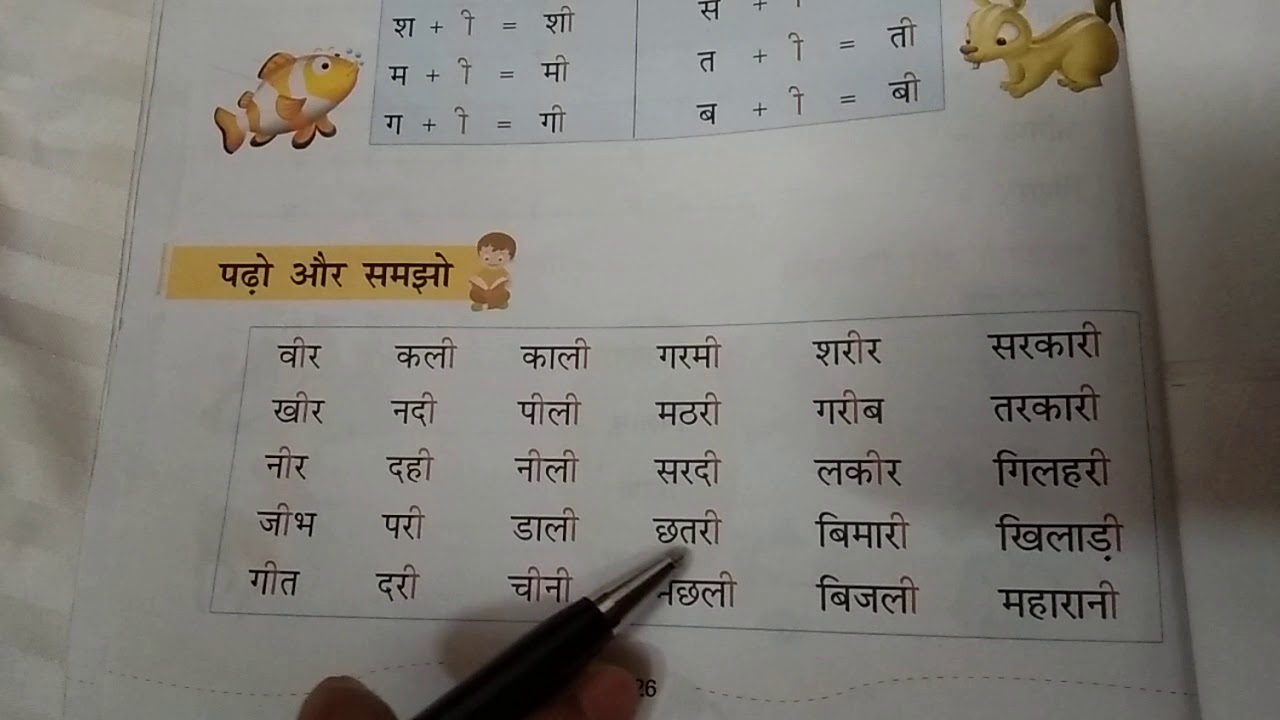 श + ी = शी
म + ी = मी
ग + ी = गी
स + ी
त + ी = ती
ब + ी = बी
पढ़ो और समझो
वीर कली काली गरमी शरीर सरकारी
खीर नदी पीली मठरी गरीब तरकारी
नीर दही नीली सरदी लकीर गिलहरी
जीभ परी डाली छतरी बिमारी खिलाड़ी
गीत दरी चीनी बिजली महारानी
26